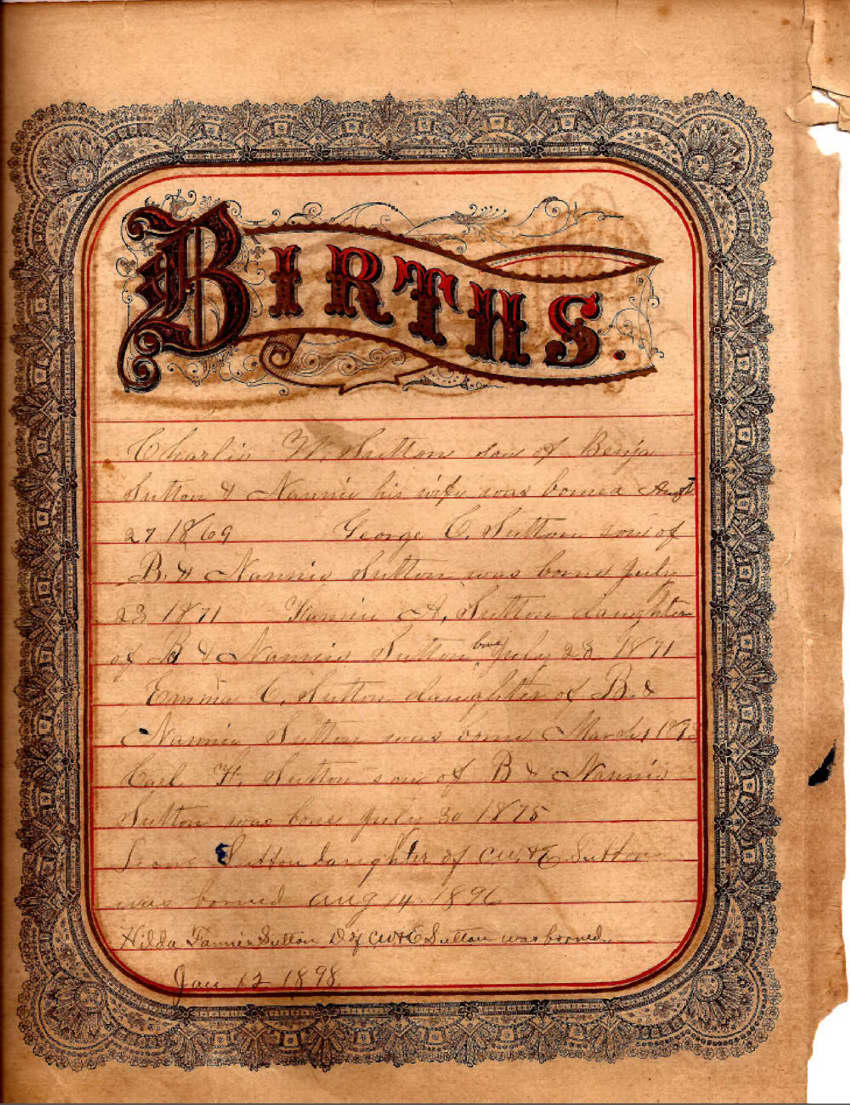 BIRTHS.
Charlie W. Sutton son of Benja
Sutton & Nannie his wife was borned August
27 1869 George C. Sutton son of
B. & Nannie Sutton was borned July
23 1871 Fannie A. Sutton daughter
of B & Nannie Sutton July 23 1871
Emma C. Sutton daughter of B. &
Nannie Sutton was borned March
Carl H. Sutton son of B & Nannie
Sutton was borned July 30 1875
Sutton daughter of CW & E Sutton
was borned Aug 14 1896
Hilda Fannie Sutton D of CW & E Sutton was borned
Jan 12 1898